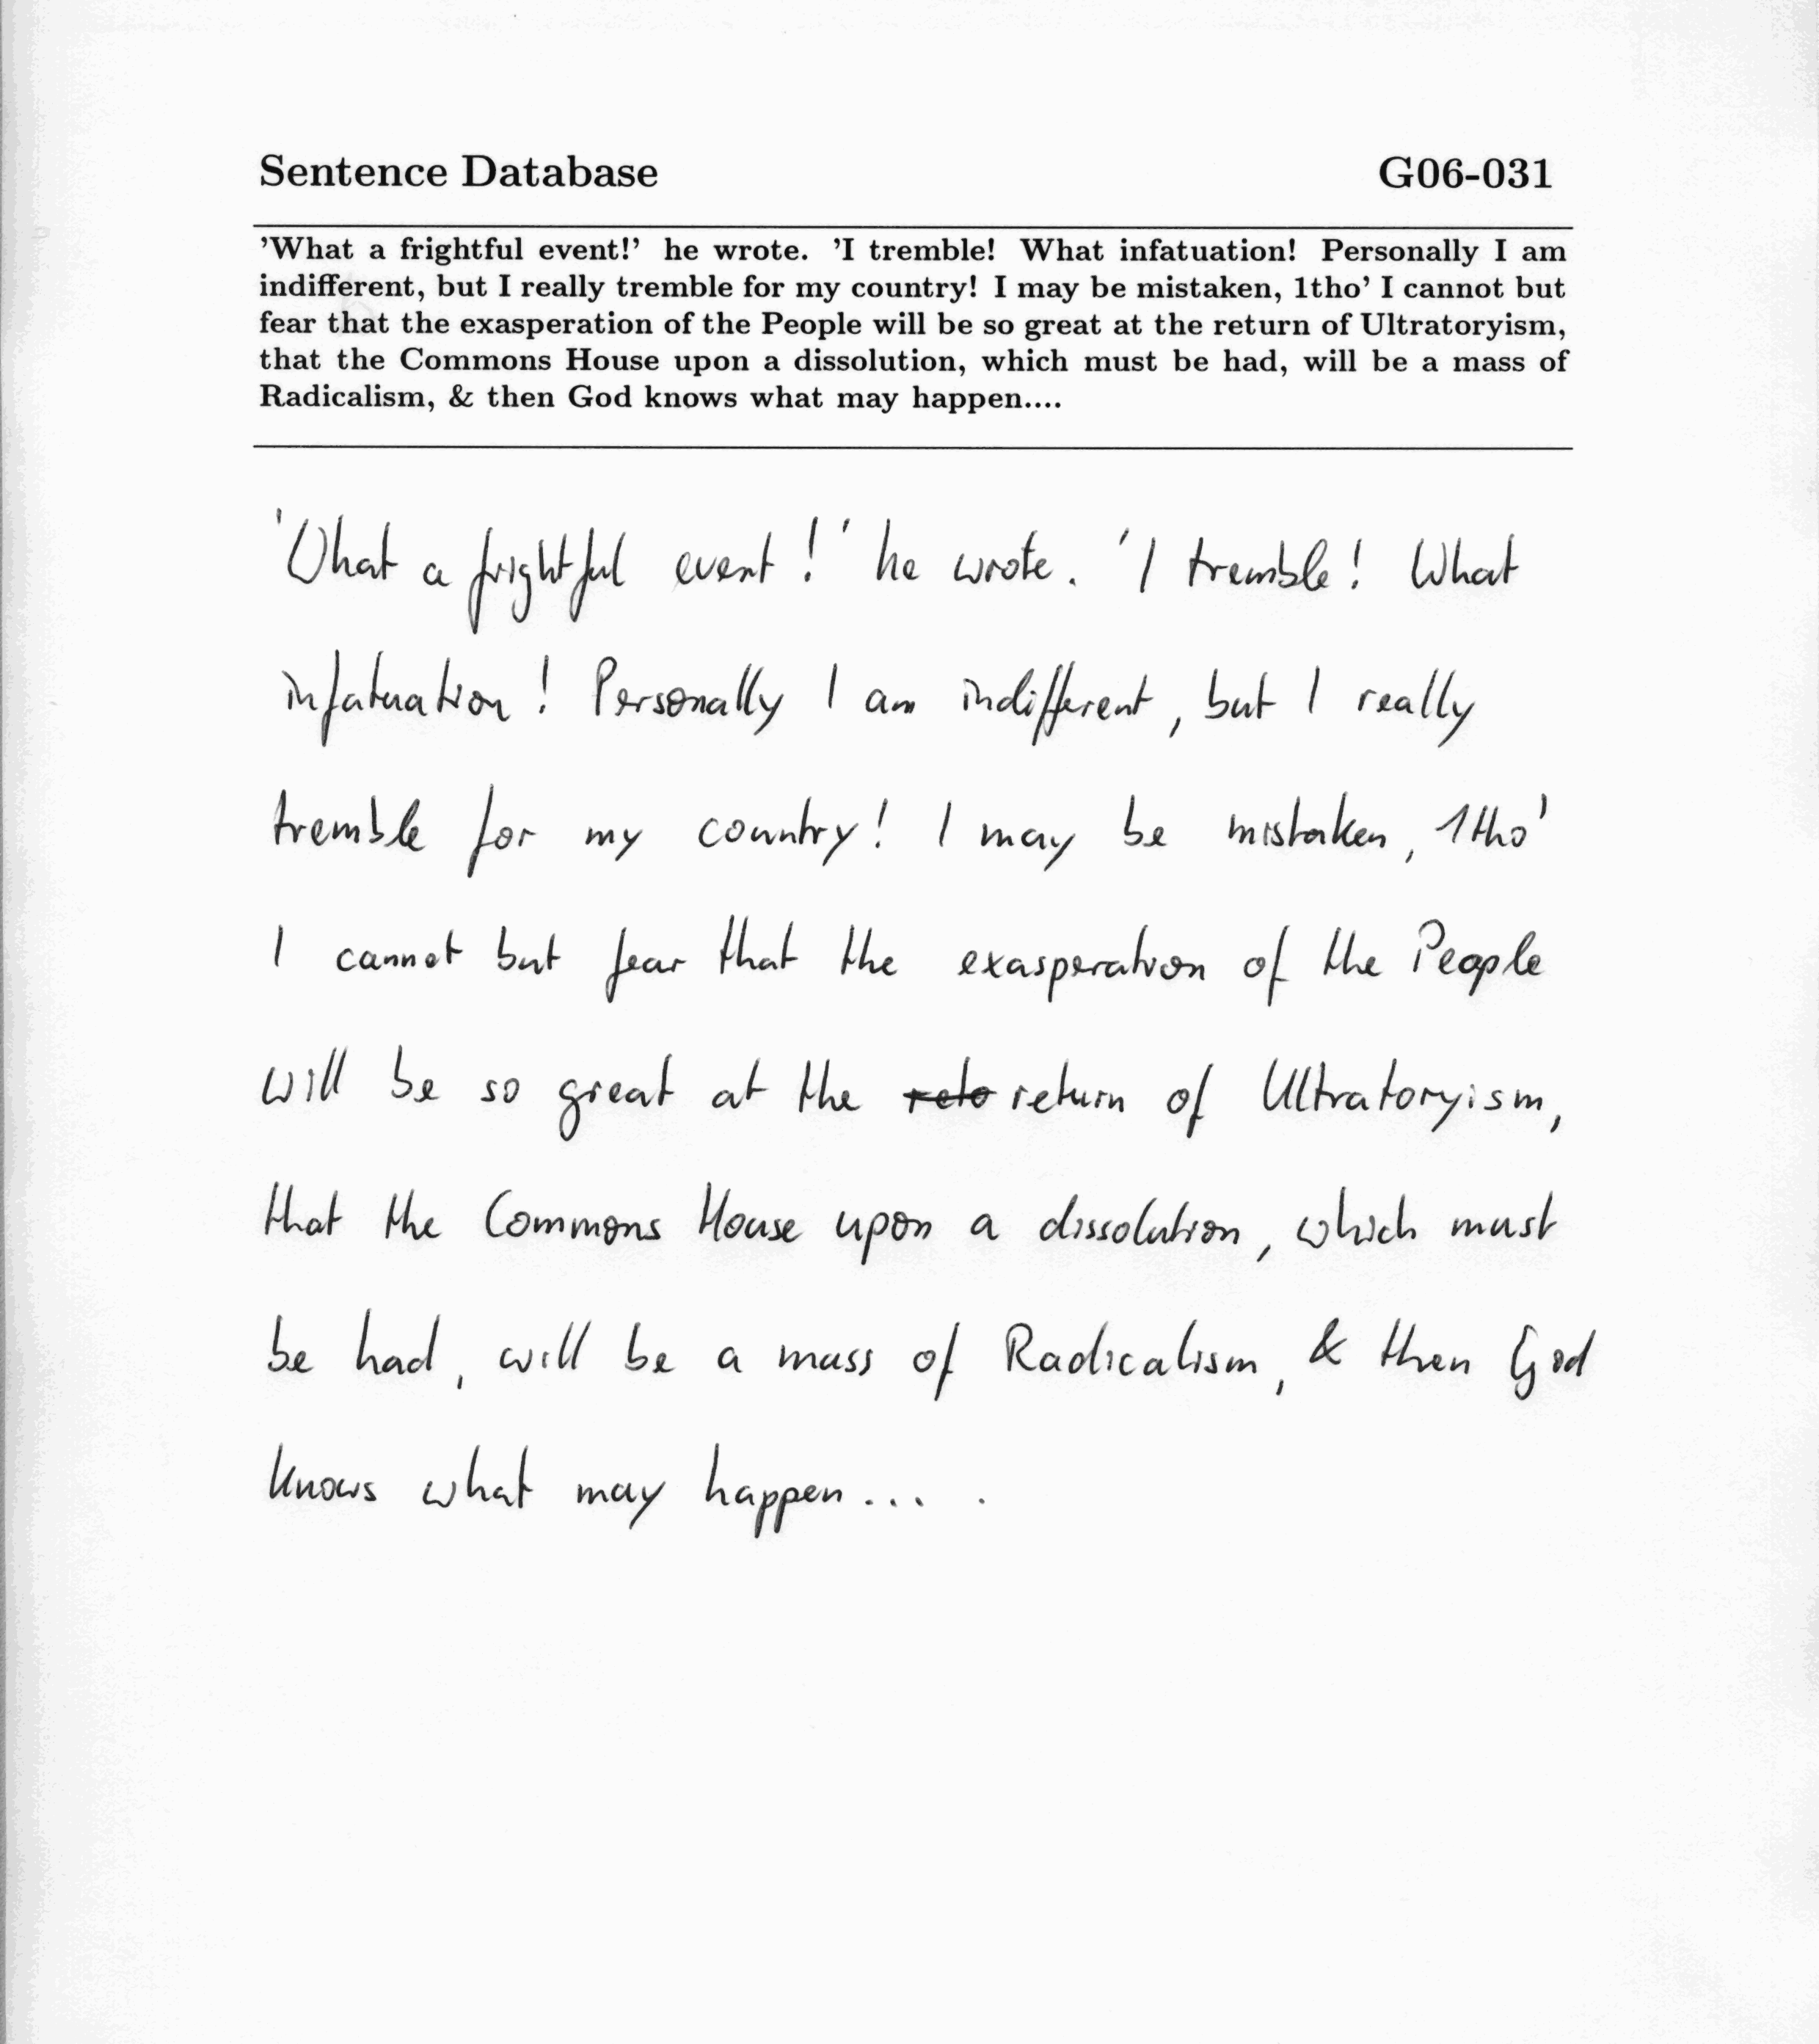 Sentence Database G06-031
'What a frightful event!' he wrote. 'I tremble! What infatuation! Personally I am
indifferent, but I really tremble for my country! I may be mistaken, 1tho' I cannot but
fear that the exasperation of the People will be so great at the return of Ultratoryism,
that the Commons House upon a dissolution, which must be had, will be a mass of
Radicalism, & then God knows what may happen....
'What a frightful event!' he wrote. 'I tremble! What
infatuation! Personally I am indifferent, but I really
tremble for my country! I may be mistaken, 1tho'
I cannot but fear that the exasperation of the People
will be so great at the reto return of Ultratoryism,
that the Commons House upon a dissolution, which must
be had, will be a mass of Radicalism, & then God
knows what may happen....